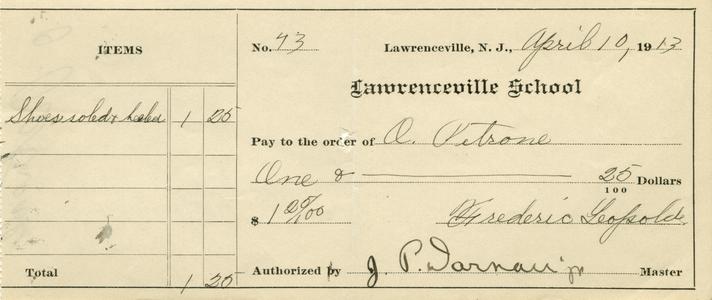 ITEMS
Shoes soled & heeled 1 25
Total 1 25
No. 43 Lawrenceville, N. J., April 10, 1913
Lawrenceville School
Pay to the order of O. Petrone
One & 25/100 Dollars
$ 1 25/100 Frederic Leopold.
Authorized by J. P. Darnall jr Master